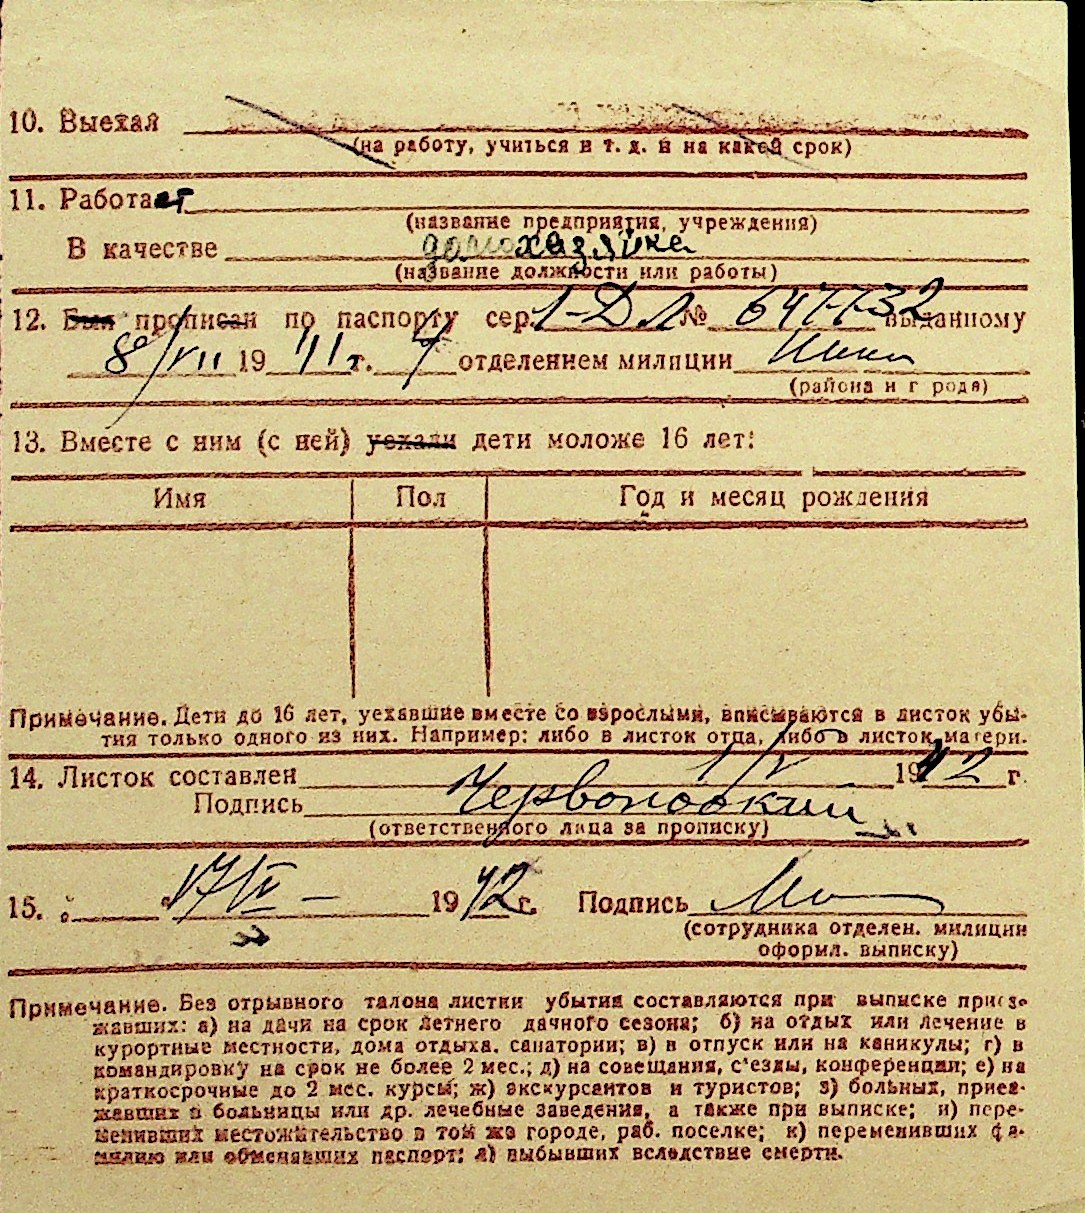 10. Выехал
(на работу, учиться и т. д. и на какой срок)
11. Работает
(название предприятия, учреждения)
В качестве домохазяйка
(название должности или работы)
12. Был прописан по паспорту сер. № выданному
8/VII 1941 г. 7 отделением милиции
(района и города)
13. Вместе с ним (с ней) уехали дети моложе 16 лет:
Имя Пол Год и месяц рождения
Примечание. Дети до 16 лет, уехавшие вместе со взрослыми, вписываются в листок убы-
тия только одного из них. Например: либо в листок отца, либо в листок матери.
14. Листок составлен 1/V 1942 г.
Подпись
(ответственного лица за прописку)
15. „ “ 17/V – 1942 г. Подпись
(сотрудника отделен. милиции
оформл. выписку)
Примечание. Без отрывного талона листки убытия составляются при выписке приез-
жавших: а) на дачи на срок летнего дачного сезона; б) на отдых или лечение в
курортные местности, дома отдыха, санатории; в) в отпуск или на каникулы; г) в
командировку на срок не более 2 мес.; д) на совещания, с'езды, конференции; е) на
краткосрочные до 2 мес. курсы; ж) экскурсантов и туристов; з) больных, приез-
жавших в больницы или др. лечебные заведения, а также при выписке; и) пере-
менивших местожительство в том же городе, раб. поселке; к) переменивших фа-
милию или обменявших паспорт; л) выбывших вследствие смерти.